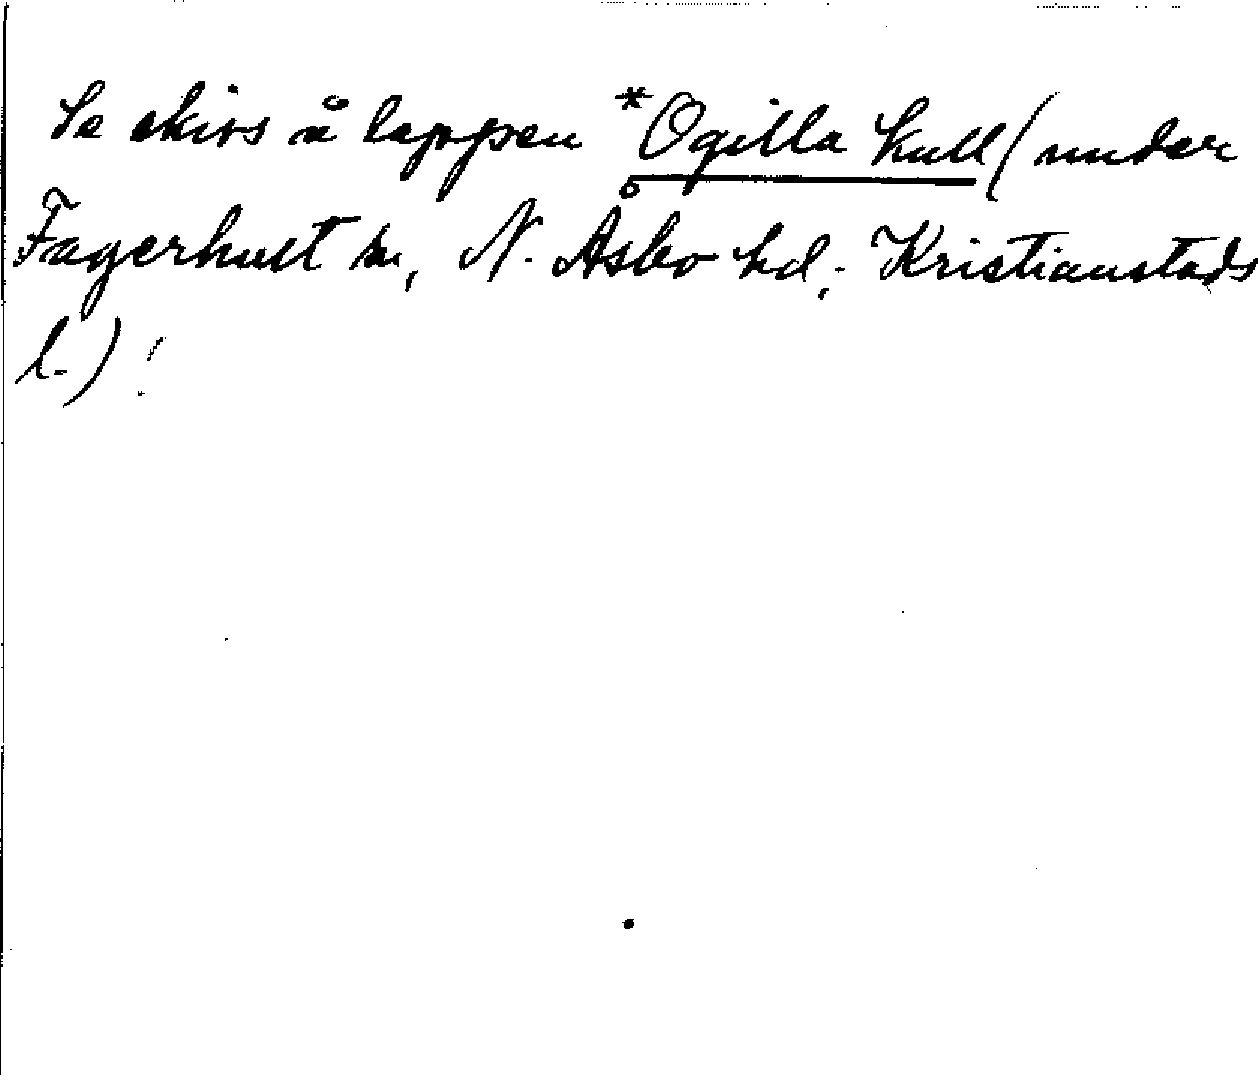 Se skivs å lappen *Ogilla kull (under
Fagerhult sn, N. Åsbo hd, Kristianstads
l.)!